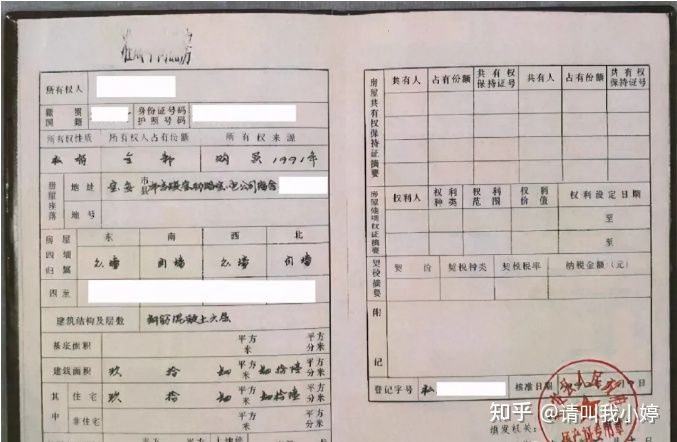 所有权人
籍贯
国籍
身份证号码
护照号码
所有权性质 所有权人占有份额 所有权来源
私有 全部 购买1991年
房屋座落
地址 宝安 市县
地号
房屋四墙归属
东 南 西 北
四至
建筑结构及层数 钢筋混凝土六层
基底面积 平方米 平方分米
建筑面积 玖 拾 平方米 平方分米
其中
住宅 玖 拾 平方米 平方分米
非住宅 平方米 平方分米
房屋共有权保持证摘要
共有人 占有份额 共有权保持证号 共有人 占有份额 共有权保持证号
房屋他项权证摘要
权利人 权利种类 权利范围 权利价值 权利设定日期
至
至
契税摘要
契价 契税种类 契税税率 纳税金额(元)
附记
登记字号 私 核准日期
填发机关:
知乎 @请叫我小婷